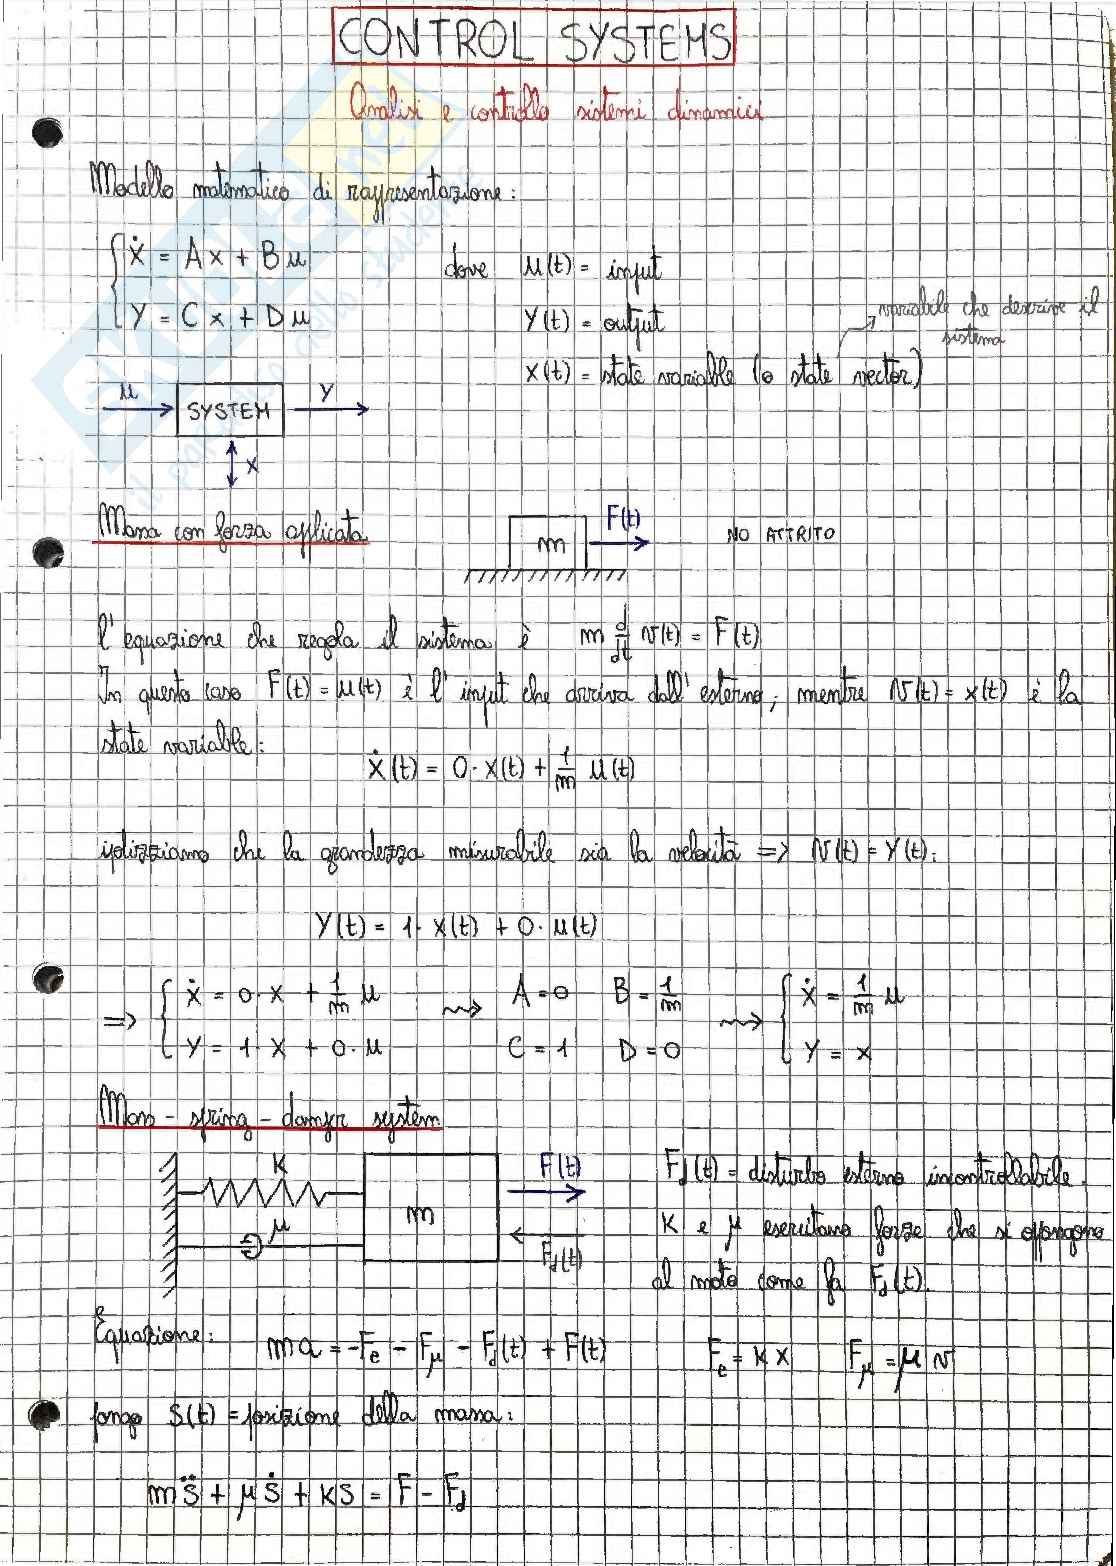 CONTROL SYSTEMS
Analisi e controllo sistemi dinamici
Modello matematico di rappresentazione:
ẋ = Ax + Bu
Y = Cx + Du
dove u(t) = input
Y(t) = output
x(t) = state variable (o state vector)
variabile che descrive il
sistema
u SYSTEM Y
x
Massa con forza applicata
m F(t) NO ATTRITO
l'equazione che regola il sistema è m d/dt v(t) = F(t)
In questo caso F(t) = u(t) è l'input che arriva dall'esterno, mentre v(t) = x(t) è la
state variable:
ẋ(t) = 0·x(t) + 1/m u(t)
ipotizziamo che la grandezza misurabile sia la velocità => v(t) = Y(t):
Y(t) = 1·x(t) + 0·u(t)
=> ẋ = 0·x + 1/m u
Y = 1·x + 0·u
A = 0 B = 1/m
C = 1 D = 0
ẋ = 1/m u
Y = x
Mass - spring - damper system
K
μ
m
F(t)
Fd(t)
Fd(t) = disturbo esterno incontrollabile.
K e μ esercitano forze che si oppongono
al moto come fa Fd(t).
Equazione: ma = -Fe - Fμ - Fd(t) + F(t) Fe = Kx Fμ = μv
pongo S(t) = posizione della massa:
ms̈ + μṡ + Ks = F - Fd
skuola.net
il paradiso dello studente